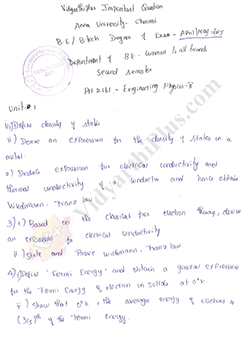 Vidyarthiplus Important Question
Anna University - Chennai
B.E / B.tech Degree of Exam - April/May
Department of B.E - common to all branch
Second semester
PH 2161 - Engineering Physics - II
Unit :- 1
1) Define density of states
ii) Derive an expression for the density of states in a
metal.
2) Deduce expression for electrical conductivity and
thermal conductivity of a conductor and hence obtain
Wiedemann. Franz law
3) i) Based on the classical free electron theory, derive
an expression for electrical conductivity
ii) State and Prove Wiedemann, Franz law
4) i) Define "Fermi Energy" and obtain a general expression
for the Fermi Energy of electron in solids at 0°K.
ii) Show that 0°K, the average energy of electrons is
(3/5)th of the Fermi energy.